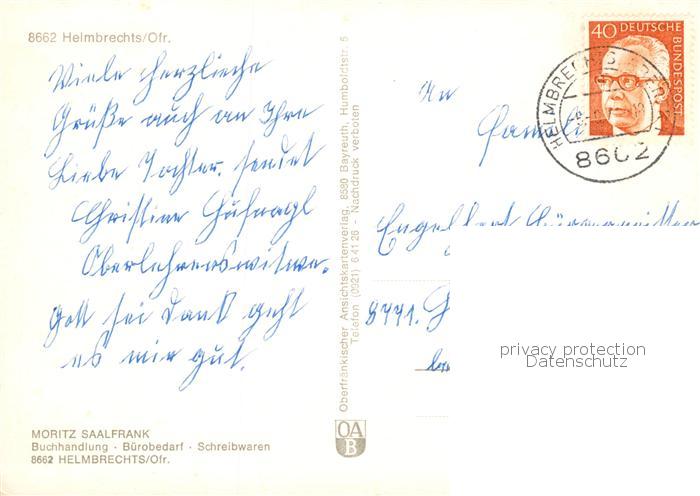 8662 Helmbrechts/Ofr.
Viele herzliche
Grüße auch an Ihre
Liebe Tochter. sendet
Christiane
Oberlehrerswitwe.
Gott sei Dank geht
es mir gut.
MORITZ SAALFRANK
Buchhandlung · Bürobedarf · Schreibwaren
8662 HELMBRECHTS/Ofr.
Oberfränkischer Ansichtskartenverlag, 8580 Bayreuth, Humboldtstr. 5
Telefon (0921) 6 41 26 - Nachdruck verboten
OA
B
40 DEUTSCHE BUNDESPOST
HELMBRECHTS
8662
An
Famili
Engelbert
8771.
privacy protection
Datenschutz